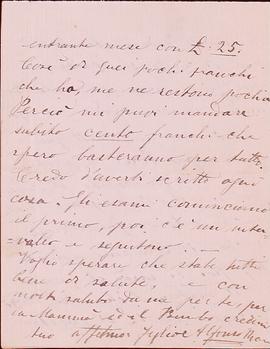 entrante mese con £ 25.
Così di quei pochi franchi
che ho, me ne restono pochi
Perciò mi puoi mandare
subito cento franchi che
spero basteranno per tutto
Credo d'averti scritto ogni
cosa. Gli esami cominciano
il primo, poi c'è un inter-
=vallo e seguitono. -
Voglio sperare che state tutti
bene di salute, e con
molti saluti da me per te per
la Mamma ed il Bimbo credimi
tuo affmo figlio Alfonso